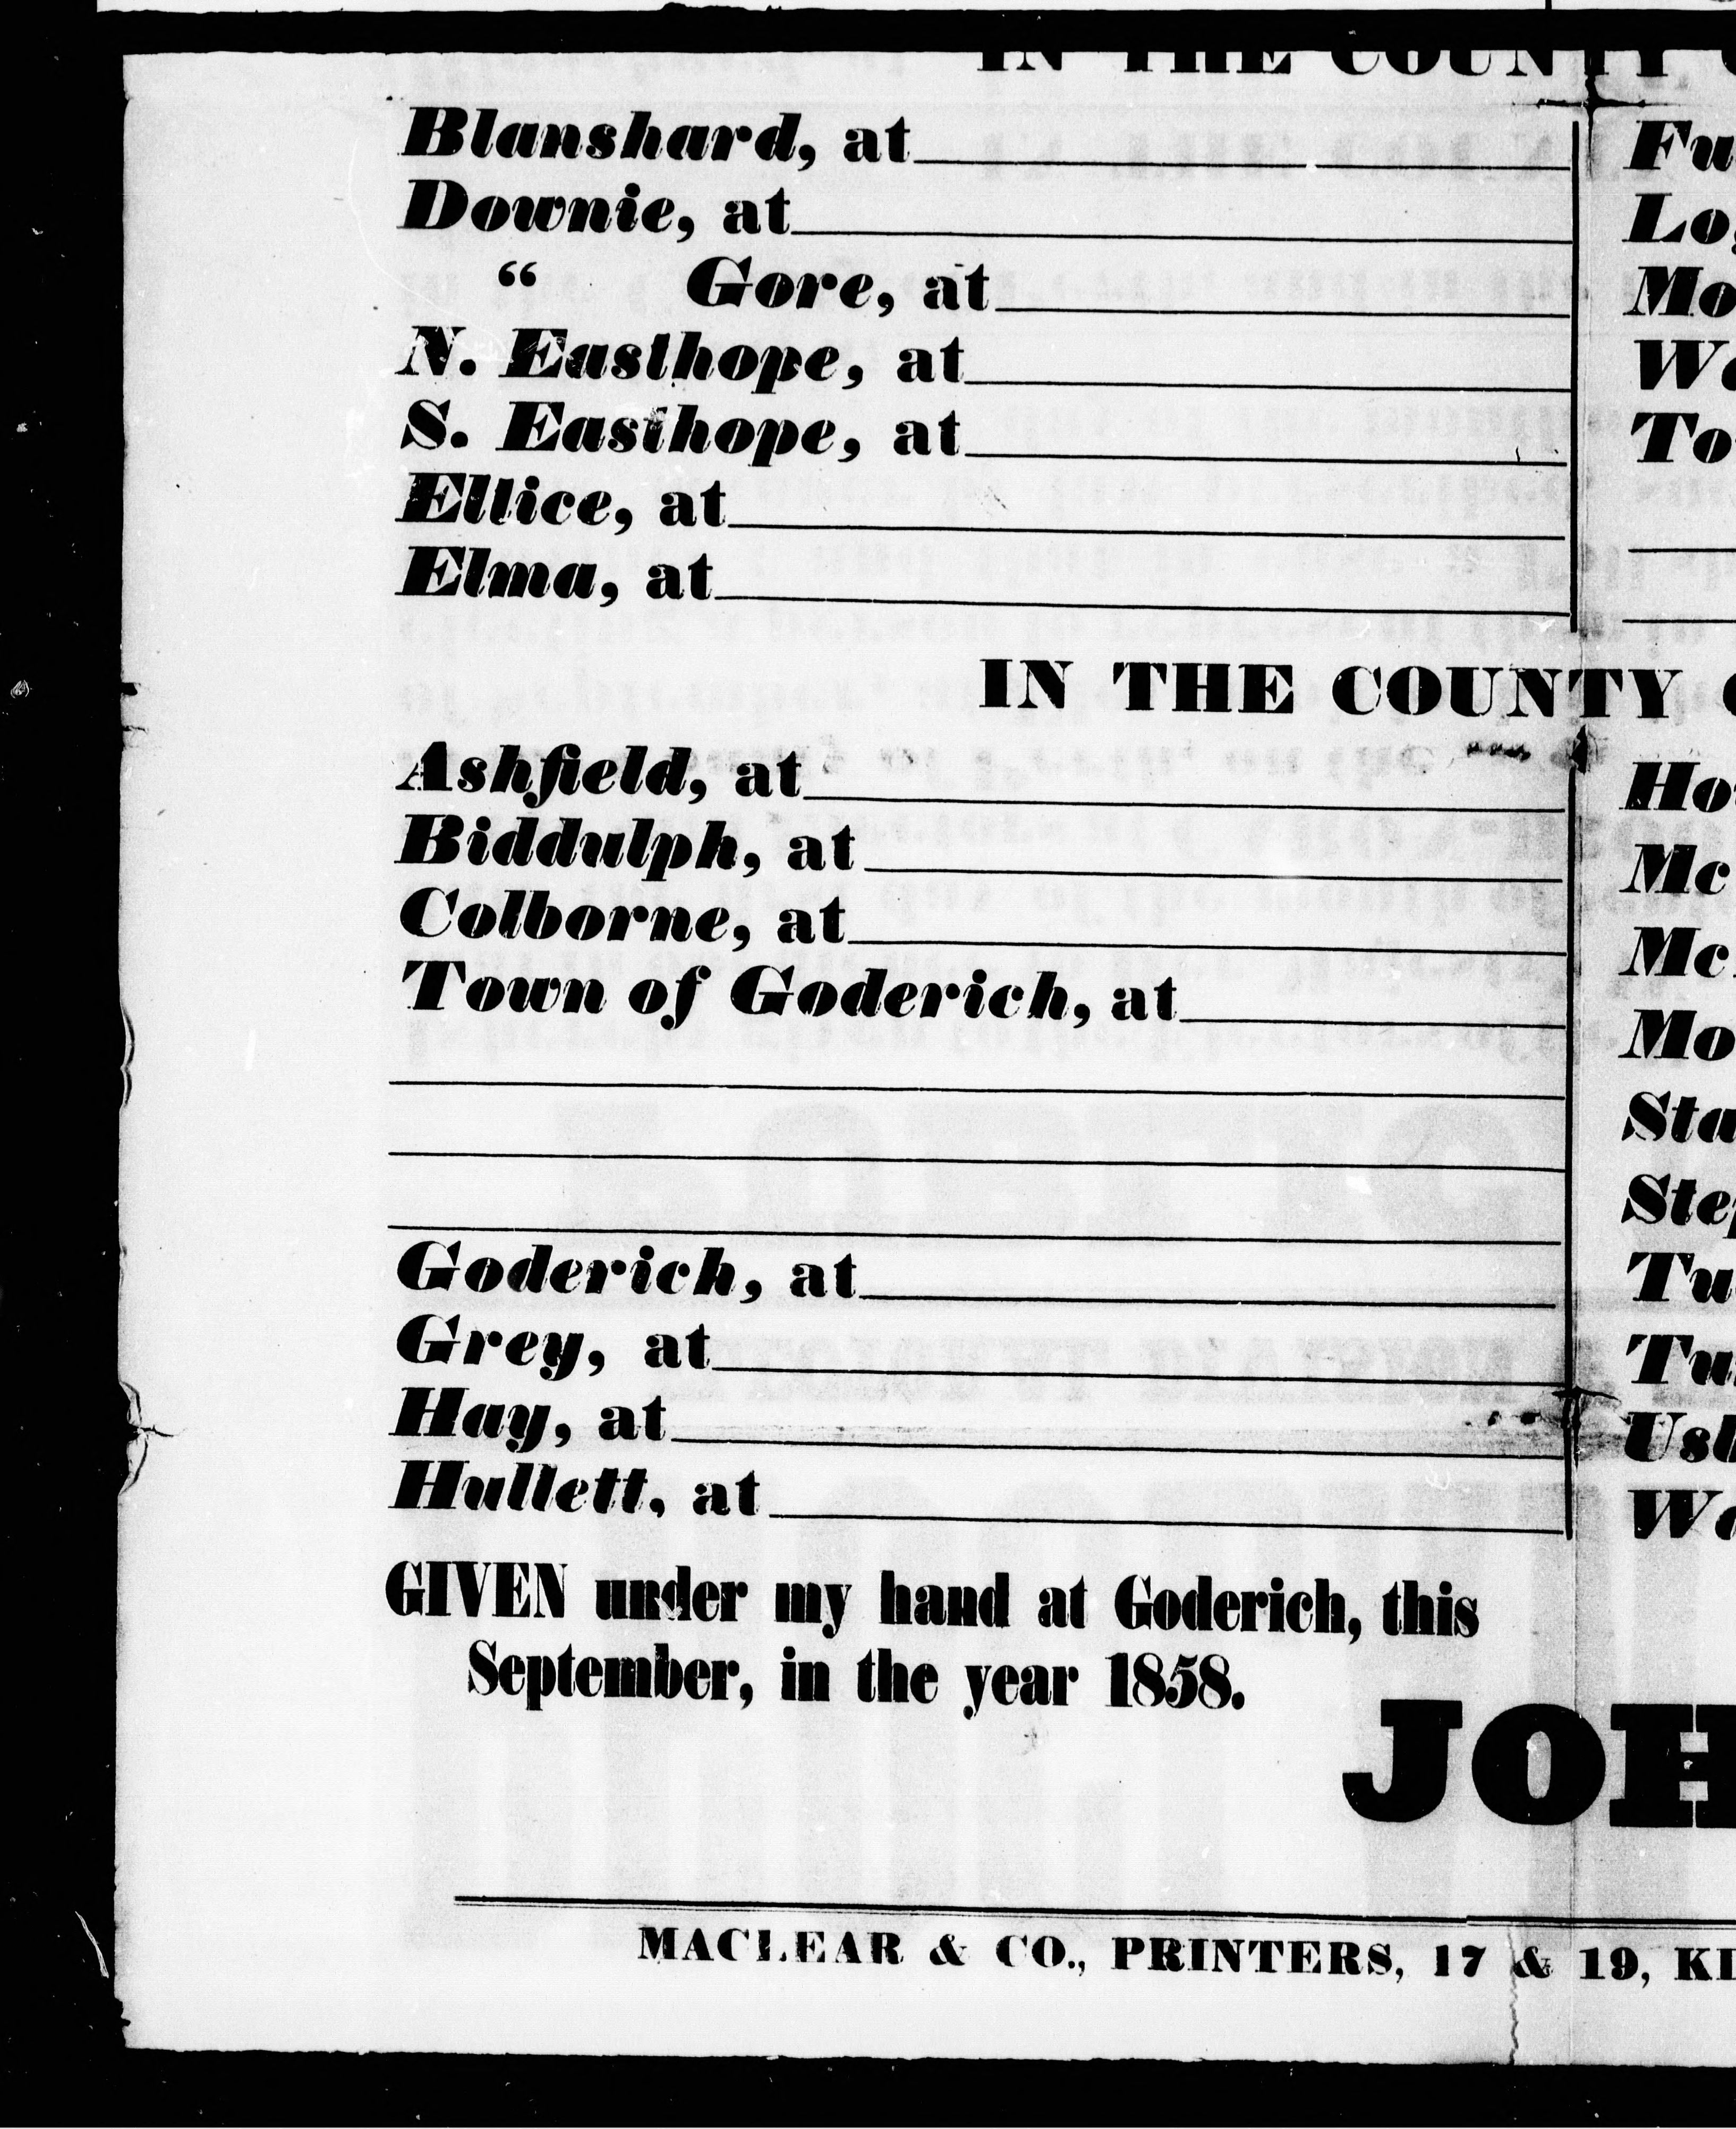 IN THE COUNTY
Blanshard, at
Downie, at
“ Gore, at
N. Easthope, at
S. Easthope, at
Ellice, at
Elma, at
Fu
Lo
Mo
We
To
IN THE COUNTY
Ashfield, at
Biddulph, at
Colborne, at
Town of Goderich, at
Goderich, at
Grey, at
Hay, at
Hullett, at
Ho
Mc
Mc
Mo
Sta
Step
Tu
Tu
Usb
Wa
GIVEN under my hand at Goderich, this
September, in the year 1858.
JOH
MACLEAR & CO., PRINTERS, 17 & 19, KI